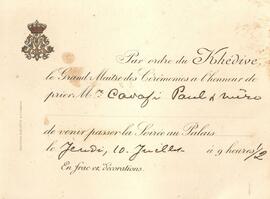 Par ordre du Khédive,
le Grand Maître des Cérémonies a l'honneur de
prier Mr. Cavafi Paul &
de venir passer la Soirée au Palais
le Jeudi, 10 Juillet à 9 heures 1/2
En frac et décorations.